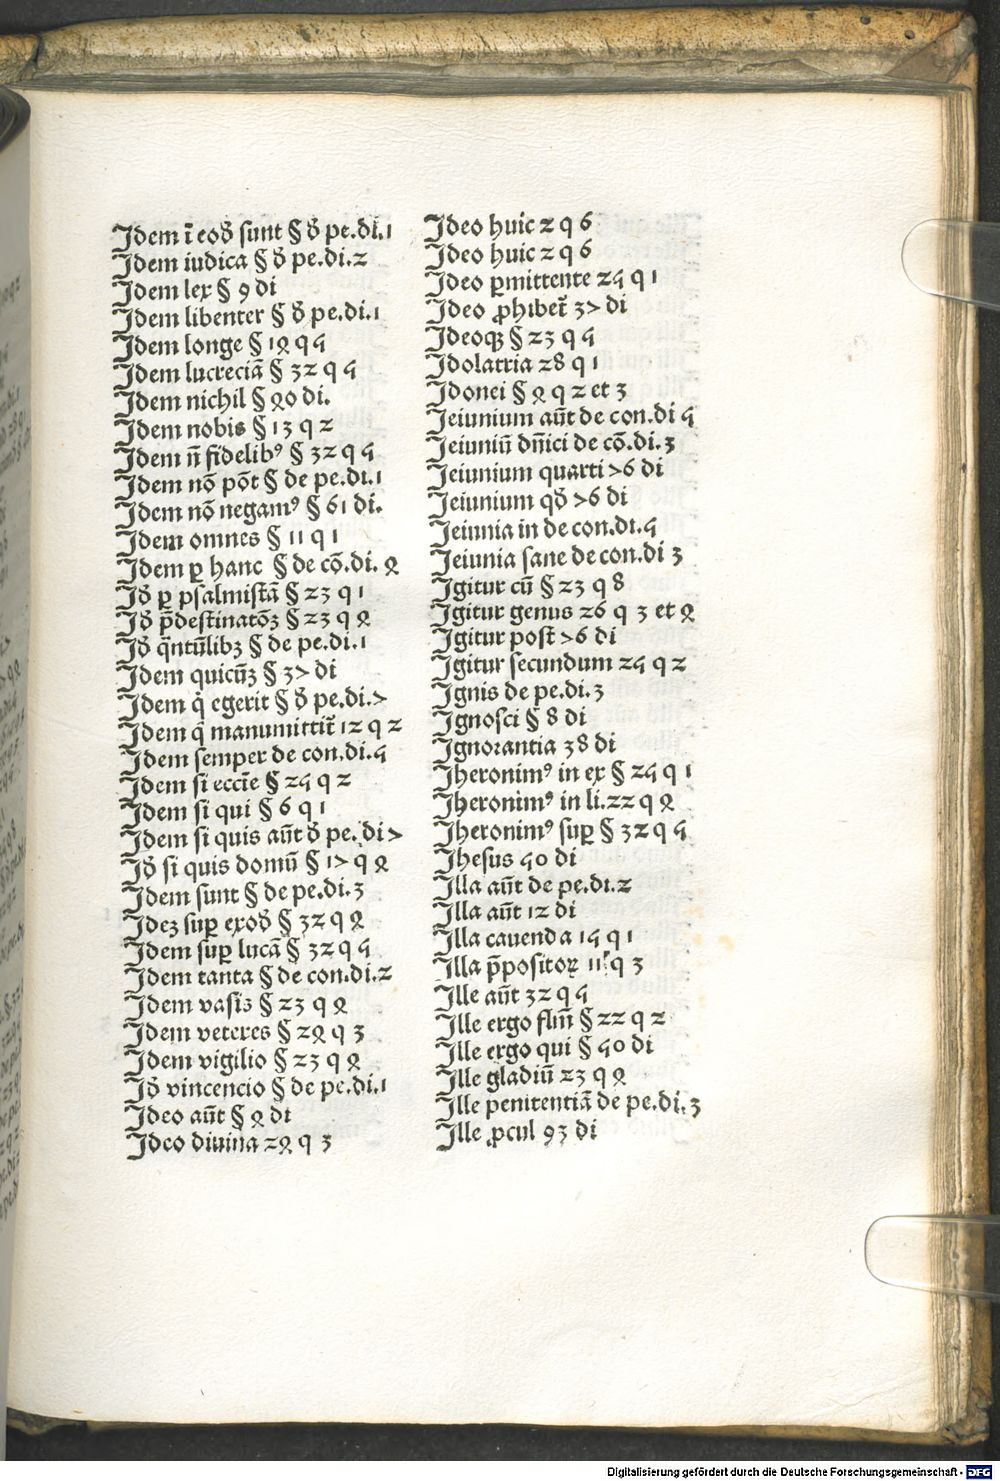 Idem ī eod̄ sunt § d̄ pe.di.1
Idem iudica § d̄ pe.di.2
Idem lex § 9 di
Idem libenter § d̄ pe.di.1
Idem longe § 12 q 5
Idem lucreciā § 32 q 5
Idem nichil § 40 di.
Idem nobis § 13 q 2
Idem n̄ fidelibꝰ § 32 q 5
Idem nō pōt § de pe.di.1
Idem nō negamꝰ § 61 di.
Idem omnes § 11 q 1
Idem ꝑ hanc § de cō.di. 4
Id̄ ꝑ psalmistā § 23 q 1
Id̄ p̄destinatōꝫ § 23 q 4
Id̄ q̄ntūlibꝫ § de pe.di.1
Idem quicūꝫ § 37 di
Idem qͥ egerit § d̄ pe.di.7
Idem qͥ manumittit̄ 12 q 2
Idem semper de con.di.5
Idem si eccīe § 25 q 2
Idem si qui § 6 q 1
Idem si quis aūt d̄ pe.di 7
Id̄ si quis domū § 17 q 4
Idem sunt § de pe.di.3
Ideꝫ suꝑ exod̄ § 32 q 4
Idem suꝑ lucā § 32 q 5
Idem tanta § de con.di.2
Idem vasis § 23 q 4
Idem veteres § 24 q 3
Idem vigilio § 23 q 4
Id̄ vincencio § de pe.di.1
Ideo aūt § 4 di
Ideo divina 24 q 3
Ideo huic 2 q 6
Ideo huic 2 q 6
Ideo ꝑmittente 25 q 1
Ideo ꝓhibet̄ 37 di
Ideoqꝫ § 23 q 5
Idolatria 28 q 1
Idonei § 4 q 2 et 3
Ieiunium aūt de con.di 5
Ieiuniū dn̄ici de cō.di.3
Ieiunium quarti 76 di
Ieiunium qd̄ 76 di
Ieiunia in de con.di.5
Ieiunia sane de con.di 3
Igitur cū § 23 q 8
Igitur genus 26 q 3 et 4
Igitur post̄ 76 di
Igitur secundum 25 q 2
Ignis de pe.di.3
Ignosci § 8 di
Ignorantia 38 di
Iheronimꝰ in ex § 25 q 1
Iheronimꝰ in li.22 q 4
Iheronimꝰ suꝑ § 32 q 5
Ihesus 50 di
Illa aūt de pe.di.2
Illa aūt 12 di
Illa cavenda 15 q 1
Illa p̄positoꝝ 11 q 3
Ille aūt 32 q 5
Ille ergo flm̄ § 22 q 2
Ille ergo qui § 50 di
Ille gladiū 23 q 4
Ille penitentiā de pe.di.3
Ille ꝓcul 93 di
Digitalisierung gefördert durch die Deutsche Forschungsgemeinschaft - DFG